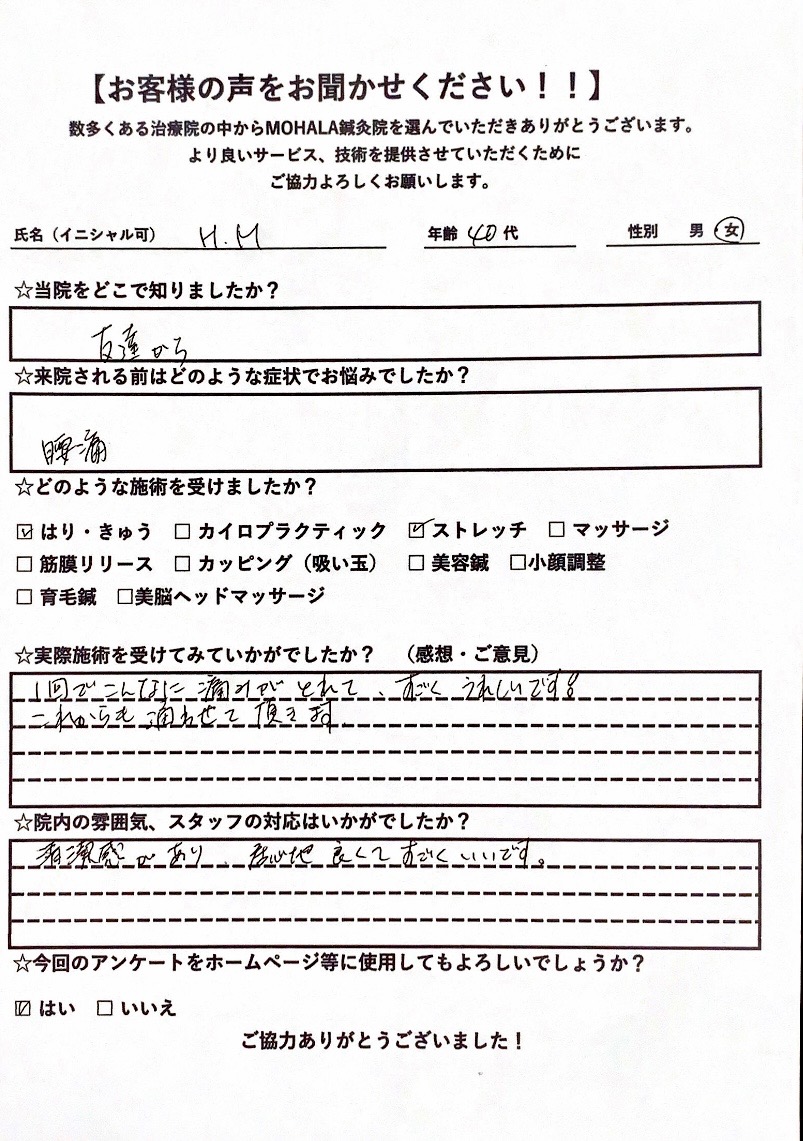 【お客様の声をお聞かせください！！】
数多くある治療院の中からMOHALA鍼灸院を選んでいただきありがとうございます。
より良いサービス、技術を提供させていただくために
ご協力よろしくお願いします。
氏名（イニシャル可） H.M 年齢 40 代 性別 男・女
☆当院をどこで知りましたか？
友達から
☆来院される前はどのような症状でお悩みでしたか？
腰痛
☆どのような施術を受けましたか？
☑ はり・きゅう □ カイロプラクティック ☑ ストレッチ □ マッサージ
□ 筋膜リリース □ カッピング（吸い玉） □ 美容鍼 □小顔調整
□ 育毛鍼 □美脳ヘッドマッサージ
☆実際施術を受けてみていかがでしたか？ （感想・ご意見）
1回でこんなに痛みがとれて、すごくうれしいです!
これからも通わせて頂きます
☆院内の雰囲気、スタッフの対応はいかがでしたか？
清潔感があり、居心地良くてすごくいいです。
☆今回のアンケートをホームページ等に使用してもよろしいでしょうか？
☑ はい □ いいえ
ご協力ありがとうございました！